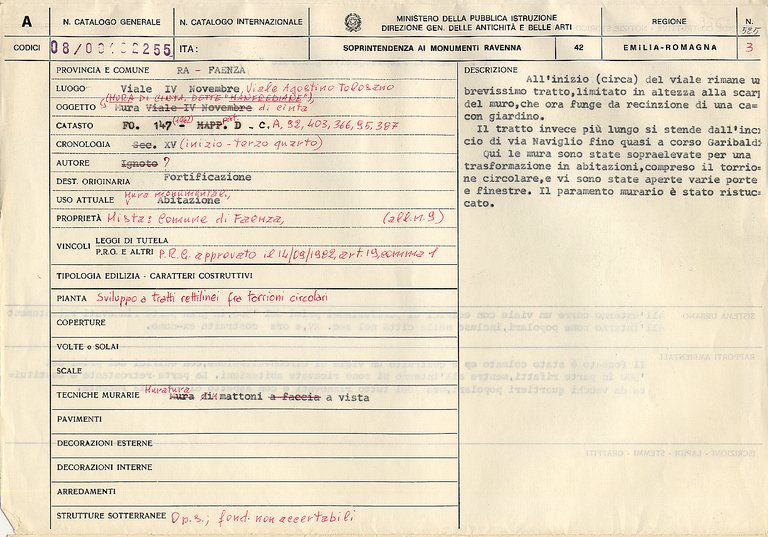 A
N. CATALOGO GENERALE
N. CATALOGO INTERNAZIONALE
MINISTERO DELLA PUBBLICA ISTRUZIONE
DIREZIONE GEN. DELLE ANTICHITÀ E BELLE ARTI
REGIONE
N.
CODICI
ITA:
SOPRINTENDENZA AI MONUMENTI RAVENNA
42
EMILIA-ROMAGNA
3
PROVINCIA E COMUNE RA - FAENZA
LUOGO Viale IV Novembre, Viale Agostino Tolosano
(MURA DI CINTA, DETTE "MANFREDIANE"),
OGGETTO Mura Viale IV Novembre di cinta
CATASTO FO. 147 - MAPP. D - C. A, 92, 403, 366, 95, 387
CRONOLOGIA Sec. XV (inizio - terzo quarto)
AUTORE Ignoto ?
DEST. ORIGINARIA Fortificazione
Mura monumentali,
USO ATTUALE Abitazione
PROPRIETÀ Mista: Comune di Faenza, (all. n. 9)
VINCOLI
LEGGI DI TUTELA
P.R.G. E ALTRI P.R.G. approvato il 14/09/1982, art. 19, comma 1
TIPOLOGIA EDILIZIA - CARATTERI COSTRUTTIVI
PIANTA Sviluppo a tratti rettilinei fra torrioni circolari
COPERTURE
VOLTE o SOLAI
SCALE
Muratura
TECNICHE MURARIE Mura di mattoni a faccia a vista
PAVIMENTI
DECORAZIONI ESTERNE
DECORAZIONI INTERNE
ARREDAMENTI
STRUTTURE SOTTERRANEE Op. s.; fond. non accertabili
DESCRIZIONE
All'inizio (circa) del viale rimane un
brevissimo tratto, limitato in altezza alla scarp
del muro, che ora funge da recinzione di una ca=
con giardino.
Il tratto invece più lungo si stende dall'inci
cio di via Naviglio fino quasi a corso Garibaldi
Qui le mura sono state sopraelevate per una
trasformazione in abitazioni, compreso il torrio=
ne circolare, e vi sono state aperte varie porte
e finestre. Il paramento murario è stato ristuc=
cato.
SISTEMA URBANO
RAPPORTI AMBIENTALI
ISCRIZIONI - LAPIDI - STEMMI - GRAFFITI